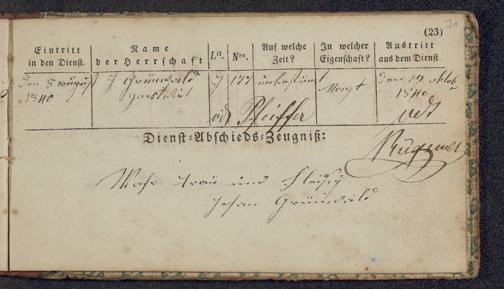 (23)
Eintritt in den Dienst. Name der Herrschaft Lit. Nro. Auf welche Zeit? In welcher Eigenschaft? Austritt aus dem Dienst.
den 8 august J Grünwald J 177 unbestimt Magt den 19 oktob
1840 1840
Pfeiffer
Dienst-Abschieds-Zeugniß:
Wahr treu und fleißig
Johan Grünwald